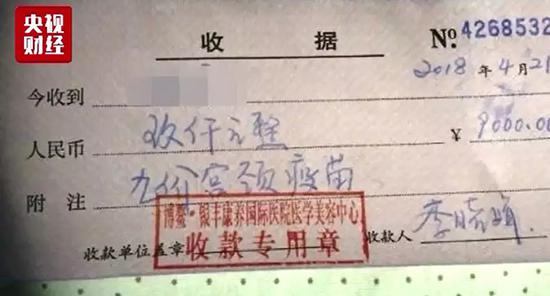 央视
财经
收 据 №4268532
2018 年 4 月 21
今收到
人民币 玖仟元整 ¥ 9000.00
附 注 九价宫颈疫苗
博鳌·银丰康养国际医院医学美容中心
收款单位盖章 收款专用章 收款人 李晓